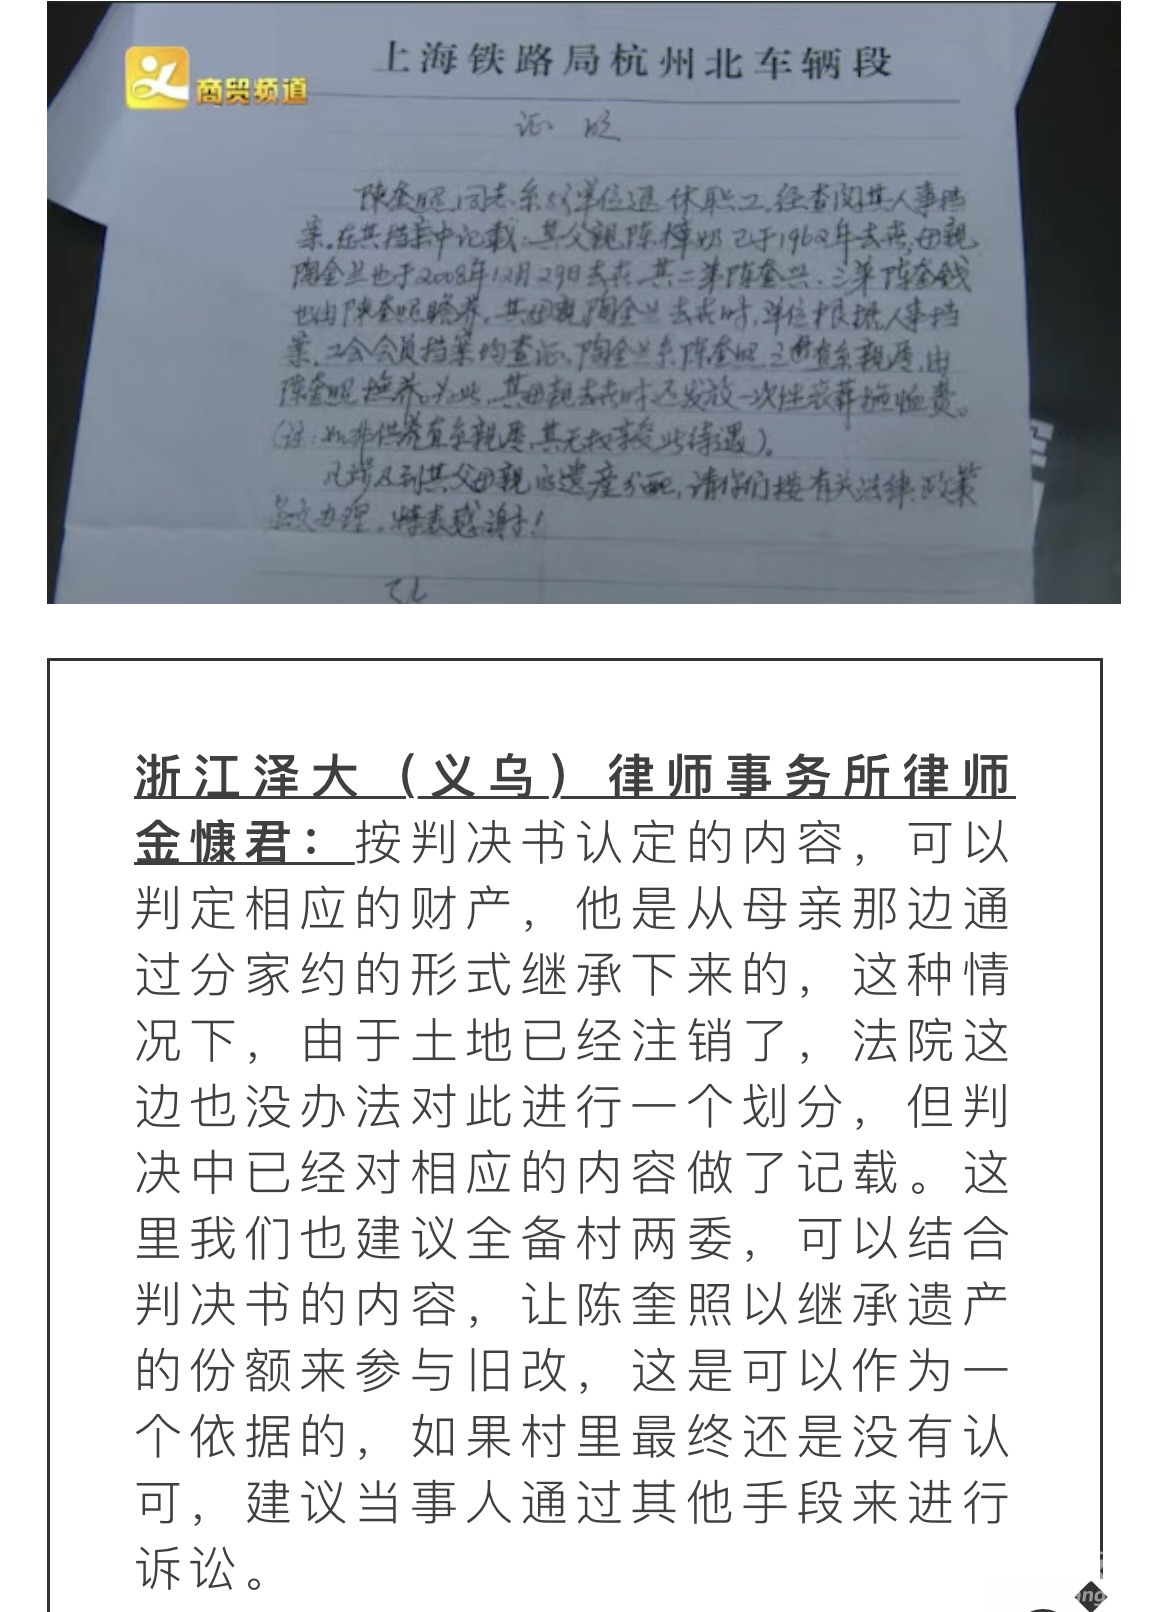 商贸频道
上海铁路局杭州北车辆段
证明
陈奎照同志系我单位退休职工,经查阅其人事档
案,在其档案中记载:其父亲陈樟奶已于1962年去丧,母亲
陶金兰也于2008年12月29日去丧,其二弟陈奎兴、三弟陈奎钱
也由陈奎照赡养,其母亲陶金兰去丧时,单位根据人事档
案,工会会员档案均查证,陶金兰系陈奎照之直系亲属,由
陈奎照抚养。为此,其母亲去丧时还发放一次性丧葬抚恤费。
(注:如非供养直系亲属,其无权享受此待遇)。
凡涉及到其父母亲的遗产分配,请你们按有关法律政策
条文办理,特表感谢!
浙江泽大(义乌)律师事务所律师
金慷君:按判决书认定的内容,可以
判定相应的财产,他是从母亲那边通
过分家约的形式继承下来的,这种情
况下,由于土地已经注销了,法院这
边也没办法对此进行一个划分,但判
决中已经对相应的内容做了记载。这
里我们也建议全备村两委,可以结合
判决书的内容,让陈奎照以继承遗产
的份额来参与旧改,这是可以作为一
个依据的,如果村里最终还是没有认
可,建议当事人通过其他手段来进行
诉讼。